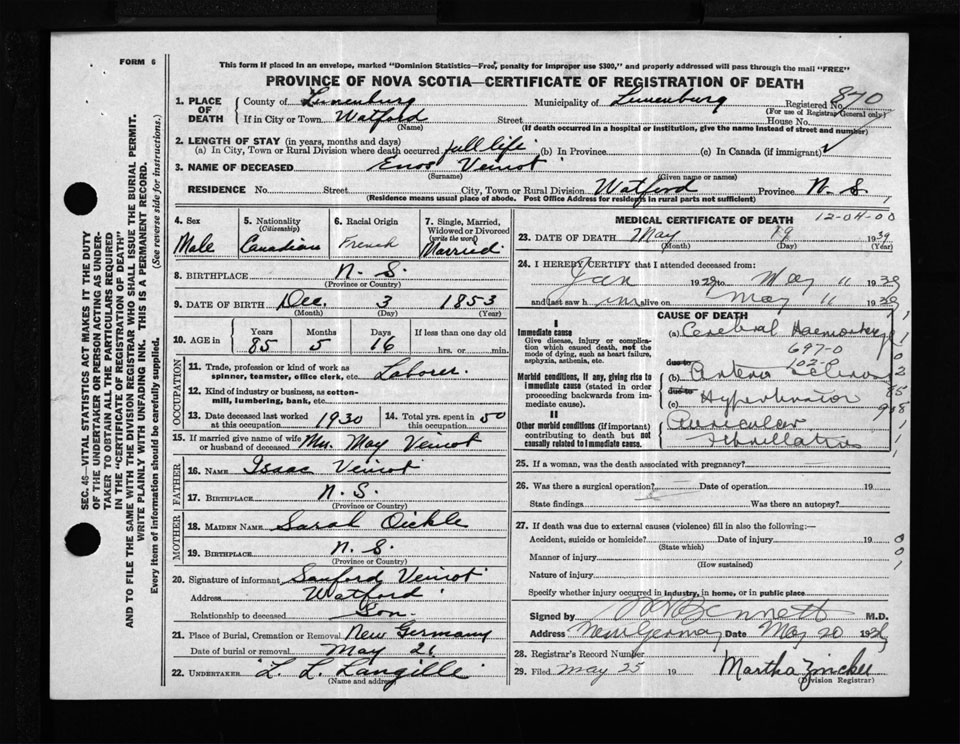 FORM 6
This form if placed in an envelope, marked "Dominion Statistics—Free, penalty for improper use $300," and properly addressed will pass through the mail "FREE"
PROVINCE OF NOVA SCOTIA—CERTIFICATE OF REGISTRATION OF DEATH
1. PLACE OF DEATH { County of Lunenburg Municipality of Lunenburg Registered No. 870
(For use of Registrar General only)
If in City or Town Watford Street House No.
(Name) (If death occurred in a hospital or institution, give the name instead of street and number)
2. LENGTH OF STAY (in years, months and days)
(a) In City, Town or Rural Division where death occurred full life (b) In Province (c) In Canada (if immigrant)
3. NAME OF DECEASED Enos Veinot
(Surname) (Given name or names)
RESIDENCE No. Street City, Town or Rural Division Watford Province N. S.
(Residence means usual place of abode. Post Office Address for residents in rural parts not sufficient)
4. Sex Male
5. Nationality (Citizenship) Canadian
6. Racial Origin French
7. Single, Married, Widowed or Divorced (write the word) Married
8. BIRTHPLACE N. S.
(Province or Country)
9. DATE OF BIRTH Dec. 3 1853
(Month) (Day) (Year)
10. AGE in { Years Months Days If less than one day old
85 5 16 hrs. or min.
OCCUPATION
11. Trade, profession or kind of work as spinner, teamster, office clerk, etc. Laborer.
12. Kind of industry or business, as cotton-mill, lumbering, bank, etc.
13. Date deceased last worked at this occupation 1930
14. Total yrs. spent in this occupation 50
15. If married give name of wife or husband of deceased Mrs. May Veinot
FATHER
16. NAME Isaac Veinot
17. BIRTHPLACE N. S.
(Province or Country)
MOTHER
18. MAIDEN NAME Sarah Oickle
19. BIRTHPLACE N. S.
(Province or Country)
20. Signature of informant Sanford Veinot
Address Watford
Relationship to deceased Son.
21. Place of Burial, Cremation or Removal New Germany
Date of burial or removal May 21
22. UNDERTAKER L. L. Langille
(Name and address)
MEDICAL CERTIFICATE OF DEATH 12-04-00
23. DATE OF DEATH May 19 1939
(Month) (Day) (Year)
24. I HEREBY CERTIFY that I attended deceased from:
Jan 1939 to May 11 1939
and last saw him alive on May 11 1939
CAUSE OF DEATH
I
Immediate cause
Give disease, injury or complication which caused death, not the mode of dying, such as heart failure, asphyxia, asthenia, etc.
(a) Cerebral Haemorrhage
697-0
102-0
Morbid conditions, if any, giving rise to immediate cause (stated in order proceeding backwards from immediate cause).
due to
(b) Arterio Sclerosis
due to
(c) Hypertension
II
Other morbid conditions (if important) contributing to death but not causally related to immediate cause.
Auricular
Fibrillation
25. If a woman, was the death associated with pregnancy?
26. Was there a surgical operation? Date of operation 19
State findings Was there an autopsy?
27. If death was due to external causes (violence) fill in also the following:—
Accident, suicide or homicide? Date of injury 19
(State which)
Manner of injury
(How sustained)
Nature of injury
Specify whether injury occurred in industry, in home, or in public place
Signed by Bennett M.D.
Address New Germany Date May 20 1939
28. Registrar's Record Number
29. Filed May 25 19 Martha Zinck
(Division Registrar)
SEC. 48—VITAL STATISTICS ACT MAKES IT THE DUTY
OF THE UNDERTAKER OR PERSON ACTING AS UNDER-
TAKER TO OBTAIN ALL THE PARTICULARS REQUIRED
IN THE "CERTIFICATE OF REGISTRATION OF DEATH"
AND TO FILE THE SAME WITH THE DIVISION REGISTRAR WHO SHALL ISSUE THE BURIAL PERMIT.
WRITE PLAINLY WITH UNFADING INK. THIS IS A PERMANENT RECORD.
Every item of information should be carefully supplied. (See reverse side for instructions.)